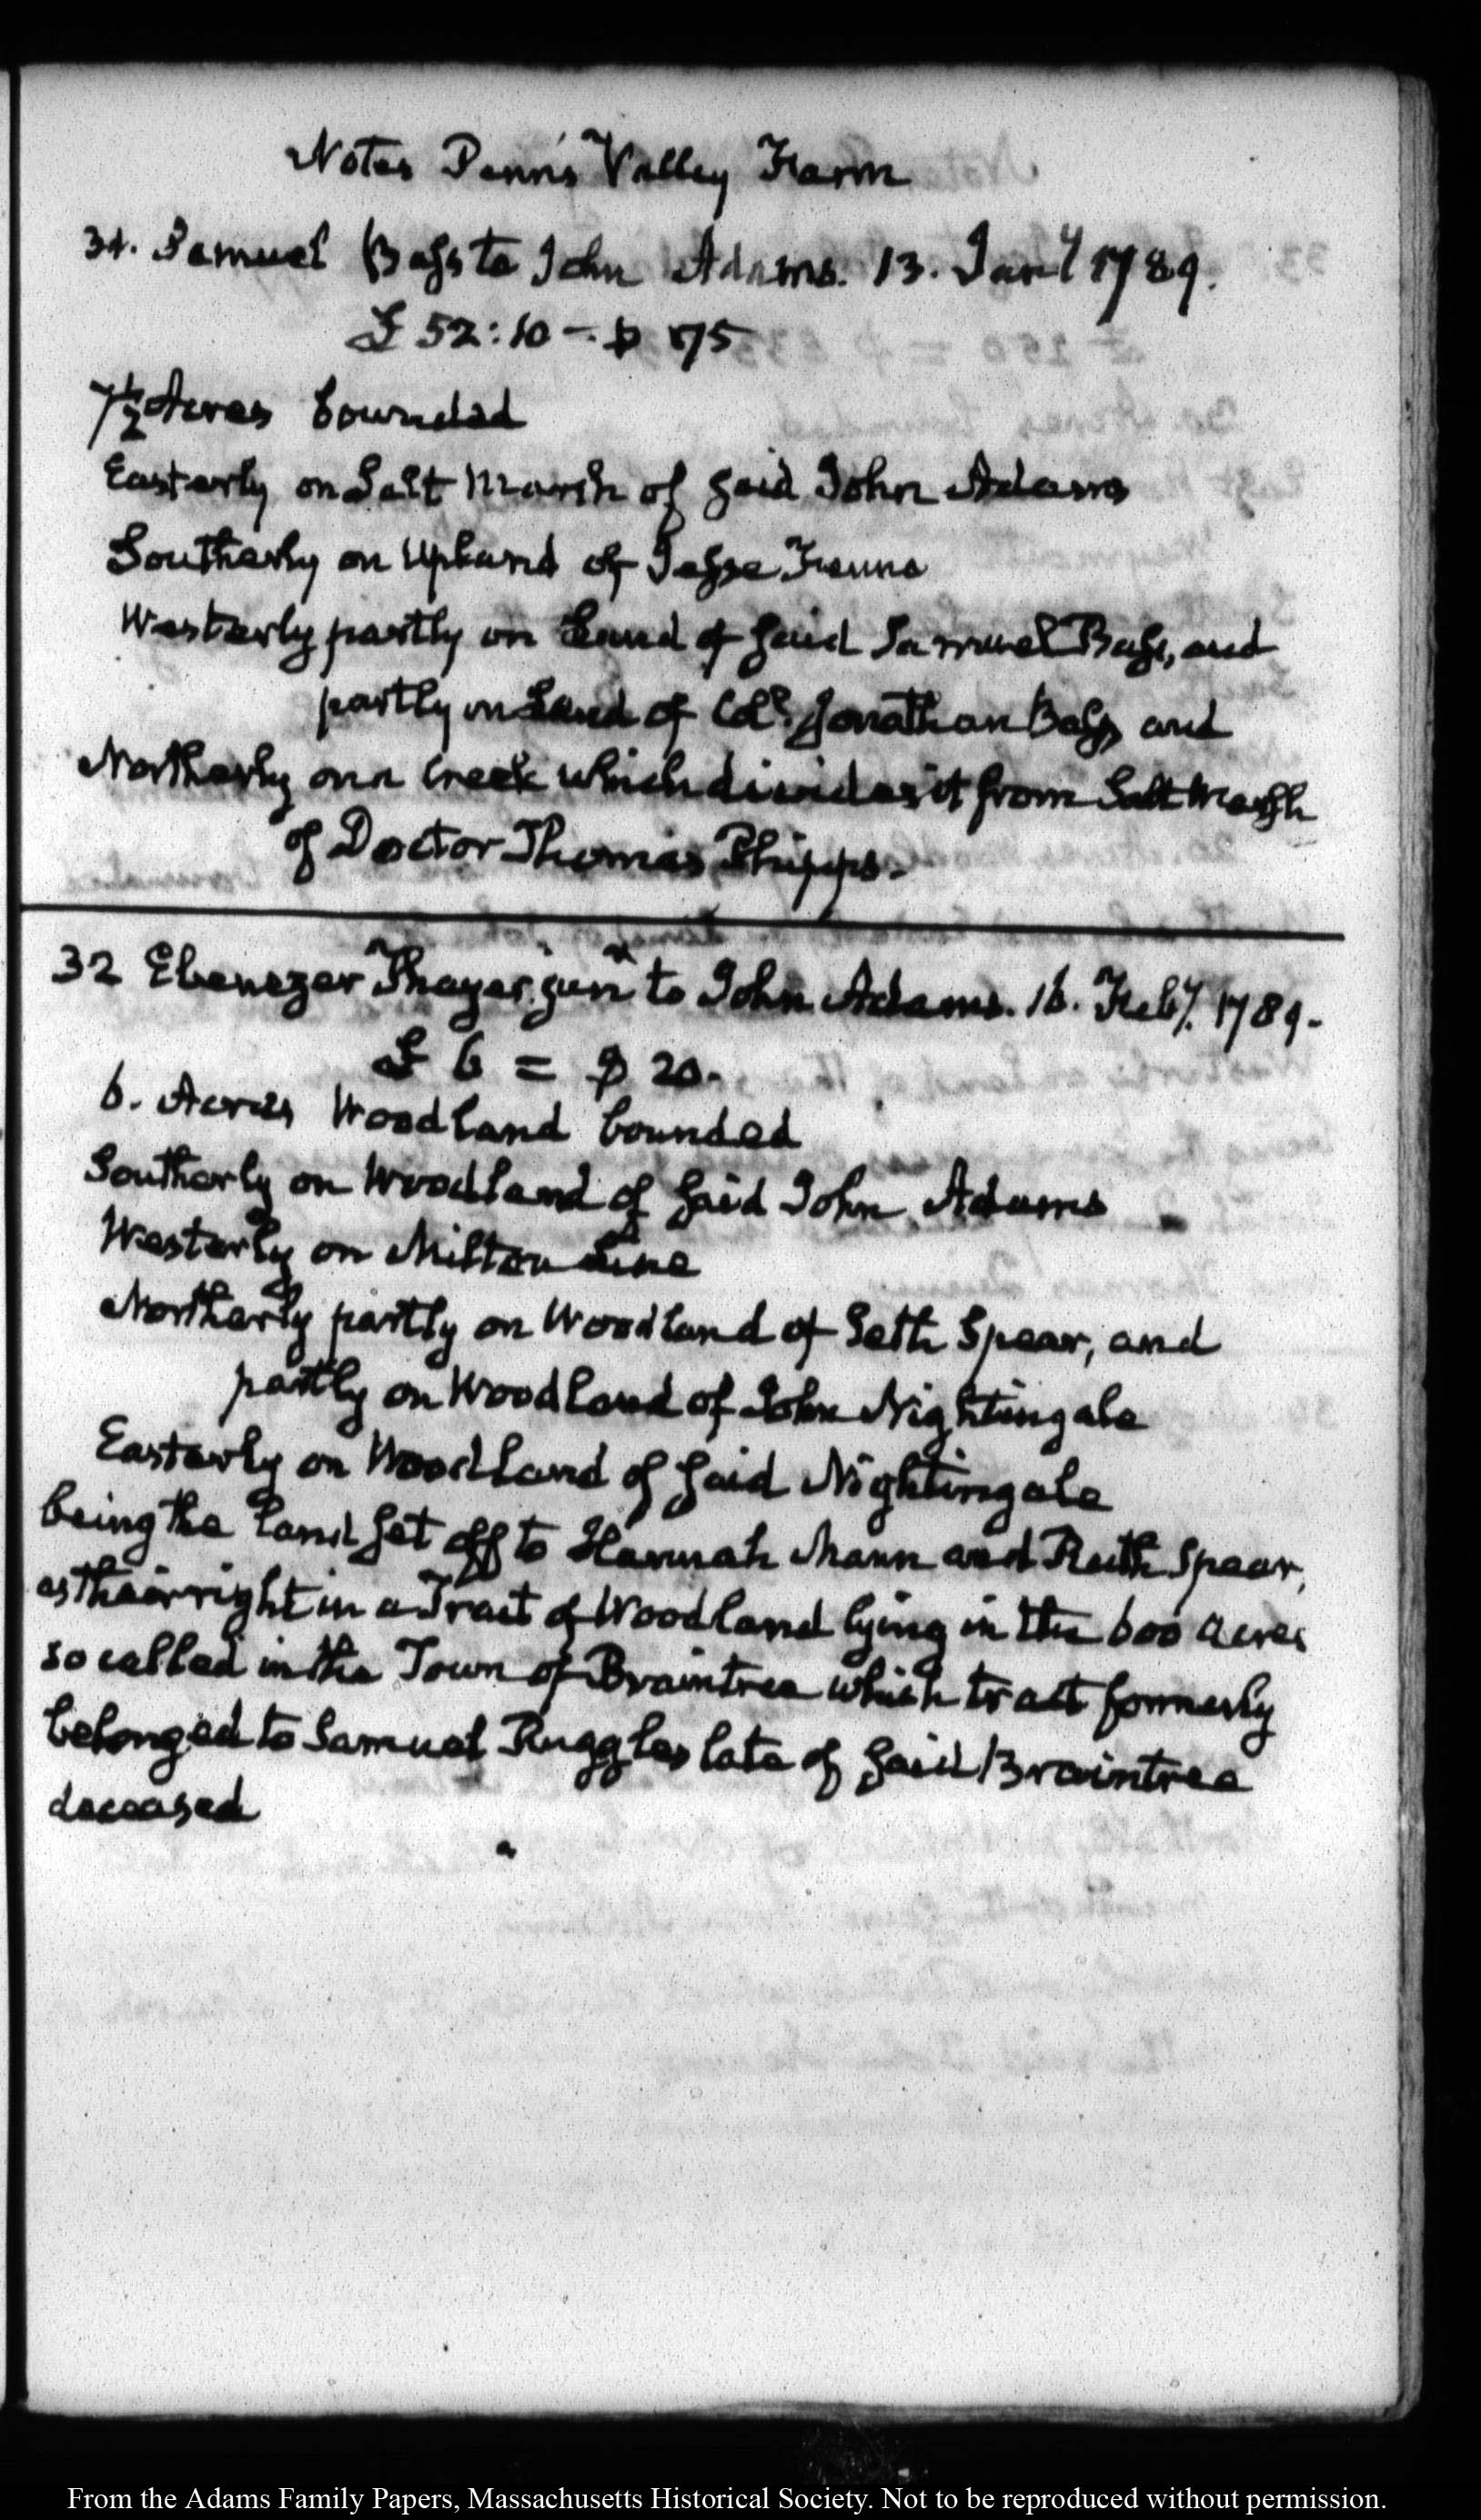 Notes Penn's Valley Farm
31. Samuel Bass to John Adams. 13. Jany 1789.
£ 52:10 — $ 175
7½ Acres bounded
Easterly on Salt Marsh of said John Adams
Southerly on Upland of Jesse Fenno
Westerly partly on Land of said Samuel Bass, and
partly on Land of Coll. Jonathan Bass and
Northerly on a Creek which divides it from Salt Marsh
of Doctor Thomas Phipps.
32 Ebenezer Thayer junr to John Adams. 16. Feby. 1789.
£ 6 = $ 20.
6. Acres Woodland bounded
Southerly on Woodland of said John Adams
Westerly on Milton Line
Northerly partly on Woodland of Seth Spear, and
partly on Woodland of John Nightingale
Easterly on Woodland of said Nightingale
being the Land set off to Hannah Mann and Ruth Spear,
as their right in a Tract of Woodland lying in the 600 acres
so called in the Town of Braintree which tract formerly
belonged to Samuel Ruggles late of said Braintree
deceased
From the Adams Family Papers, Massachusetts Historical Society. Not to be reproduced without permission.